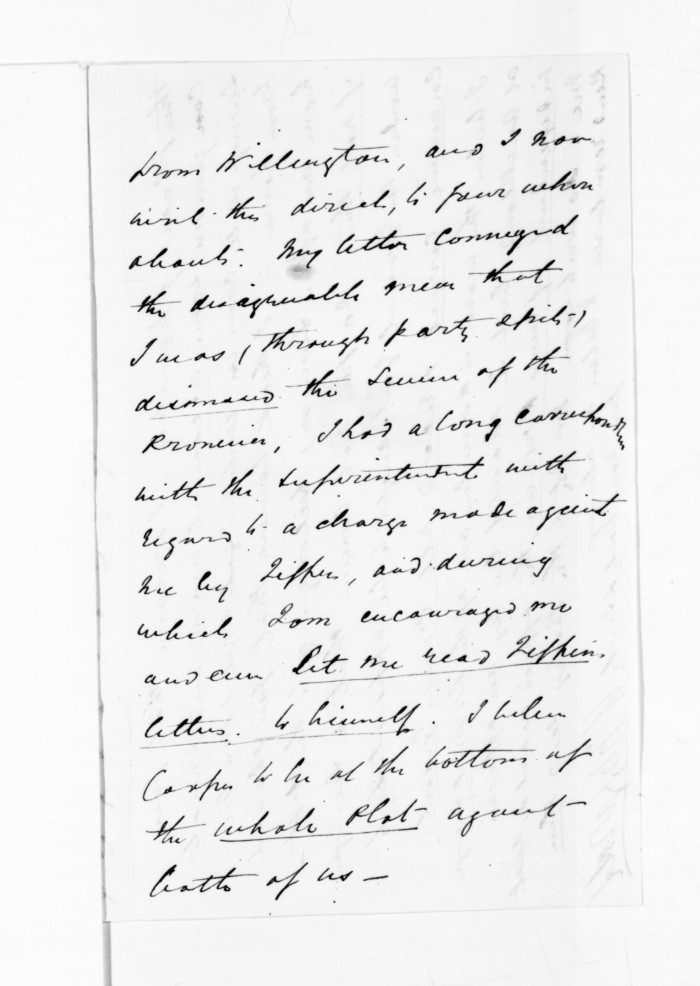 from Wellington, and I now
write this direct, to your where
abouts. My letter conveyed
the disagreeable news that
I was (through party spite)
dismissed the Service of the
Province, I had a long correspondence
with the Superintendent with
regard to a charge made against
me by Tiffen, and during
which Tom encouraged me
and even let me read Tiffens
letters to himself. I believe
to be at the bottom of
the whole Plot against
both of us —